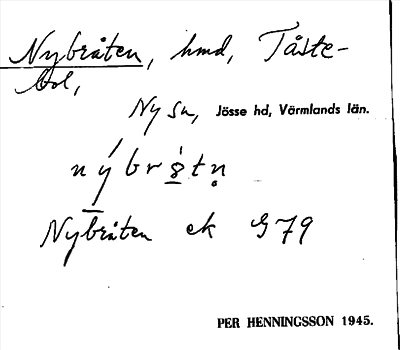 Nybråten, hmd, Tåste-
bol,
Ny sn, Jösse hd, Värmlands län.
nýbr8́tn̥
Nybråten ek G 79
PER HENNINGSSON 1945.